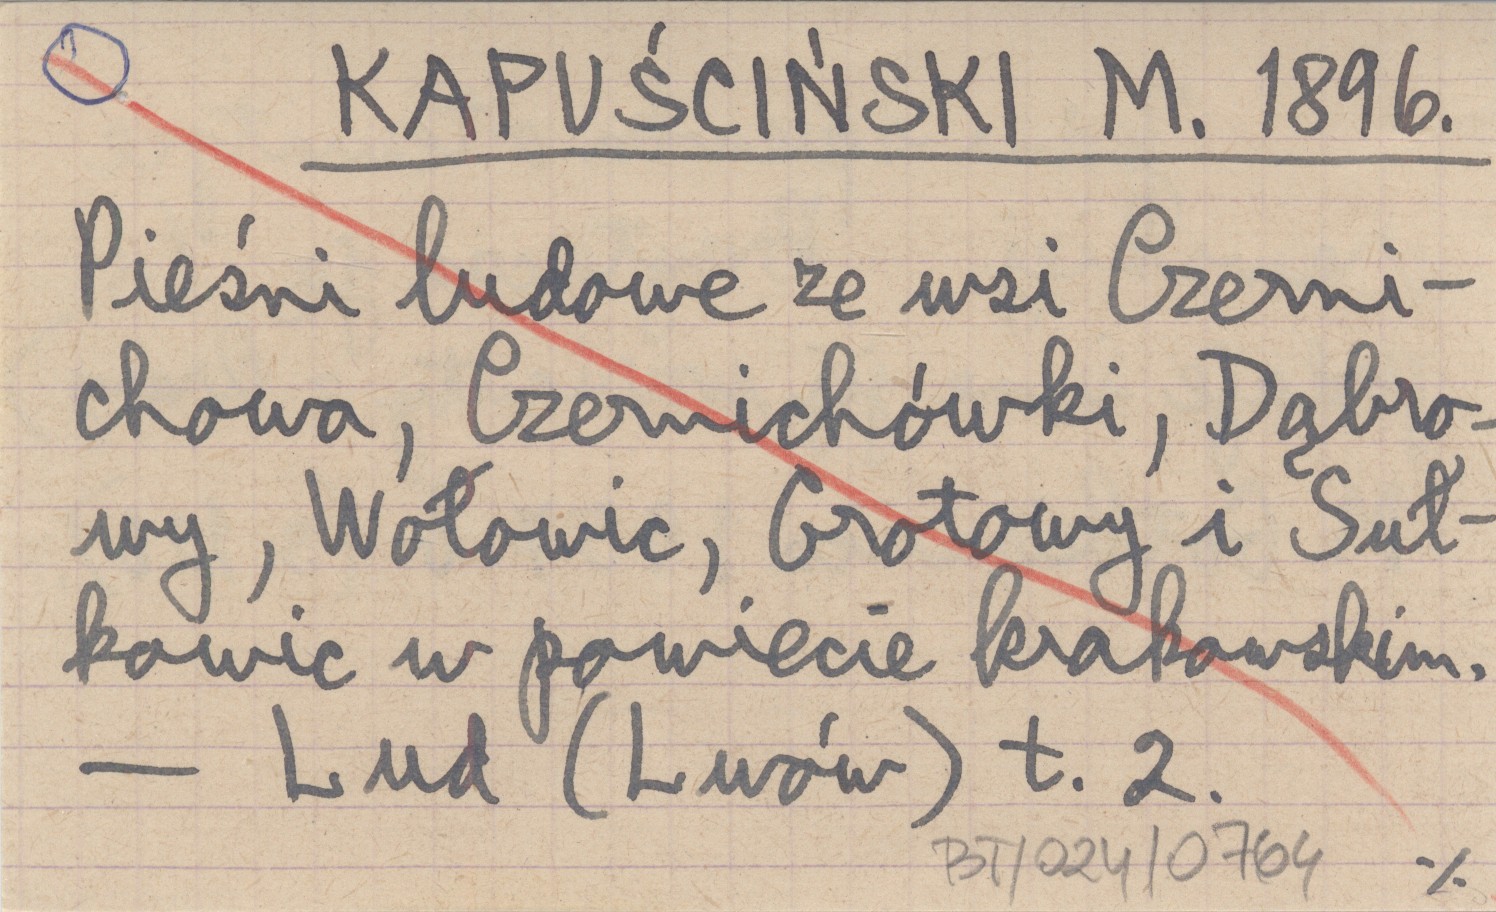 1
KAPUŚCIŃSKI M. 1896.
Pieśni ludowe ze wsi Czerni-
chowa, Czernichówki, Dąbro-
wy, Wołowic, Grotowy i Suł-
kowic w powiecie krakowskim.
— Lud (Lwów) t. 2.
BT/024/0764
./.